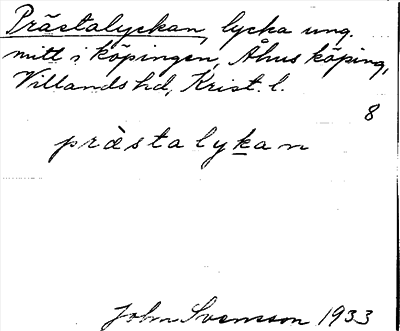 Prästalyckan, lycka ung.
mitt i köpingen, Åhus köping,
Villands hd, Krist. l.
8
prästalykan
John Svensson 1933